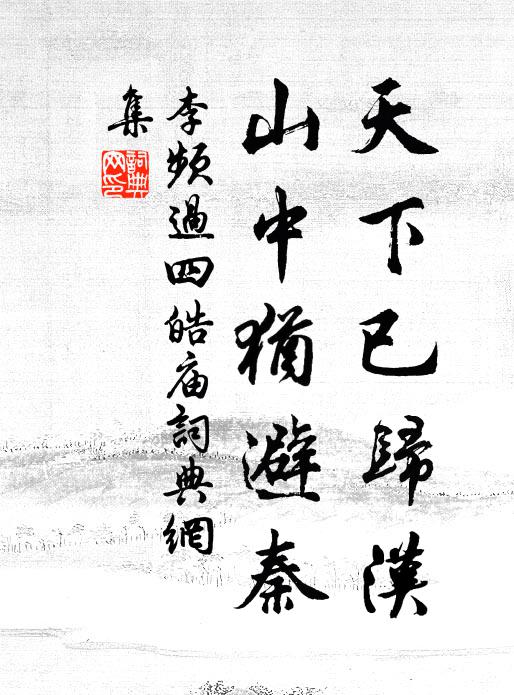 天下已歸漢
山中猶避秦
李頻過四皓庙詞典網
集
詞典网印